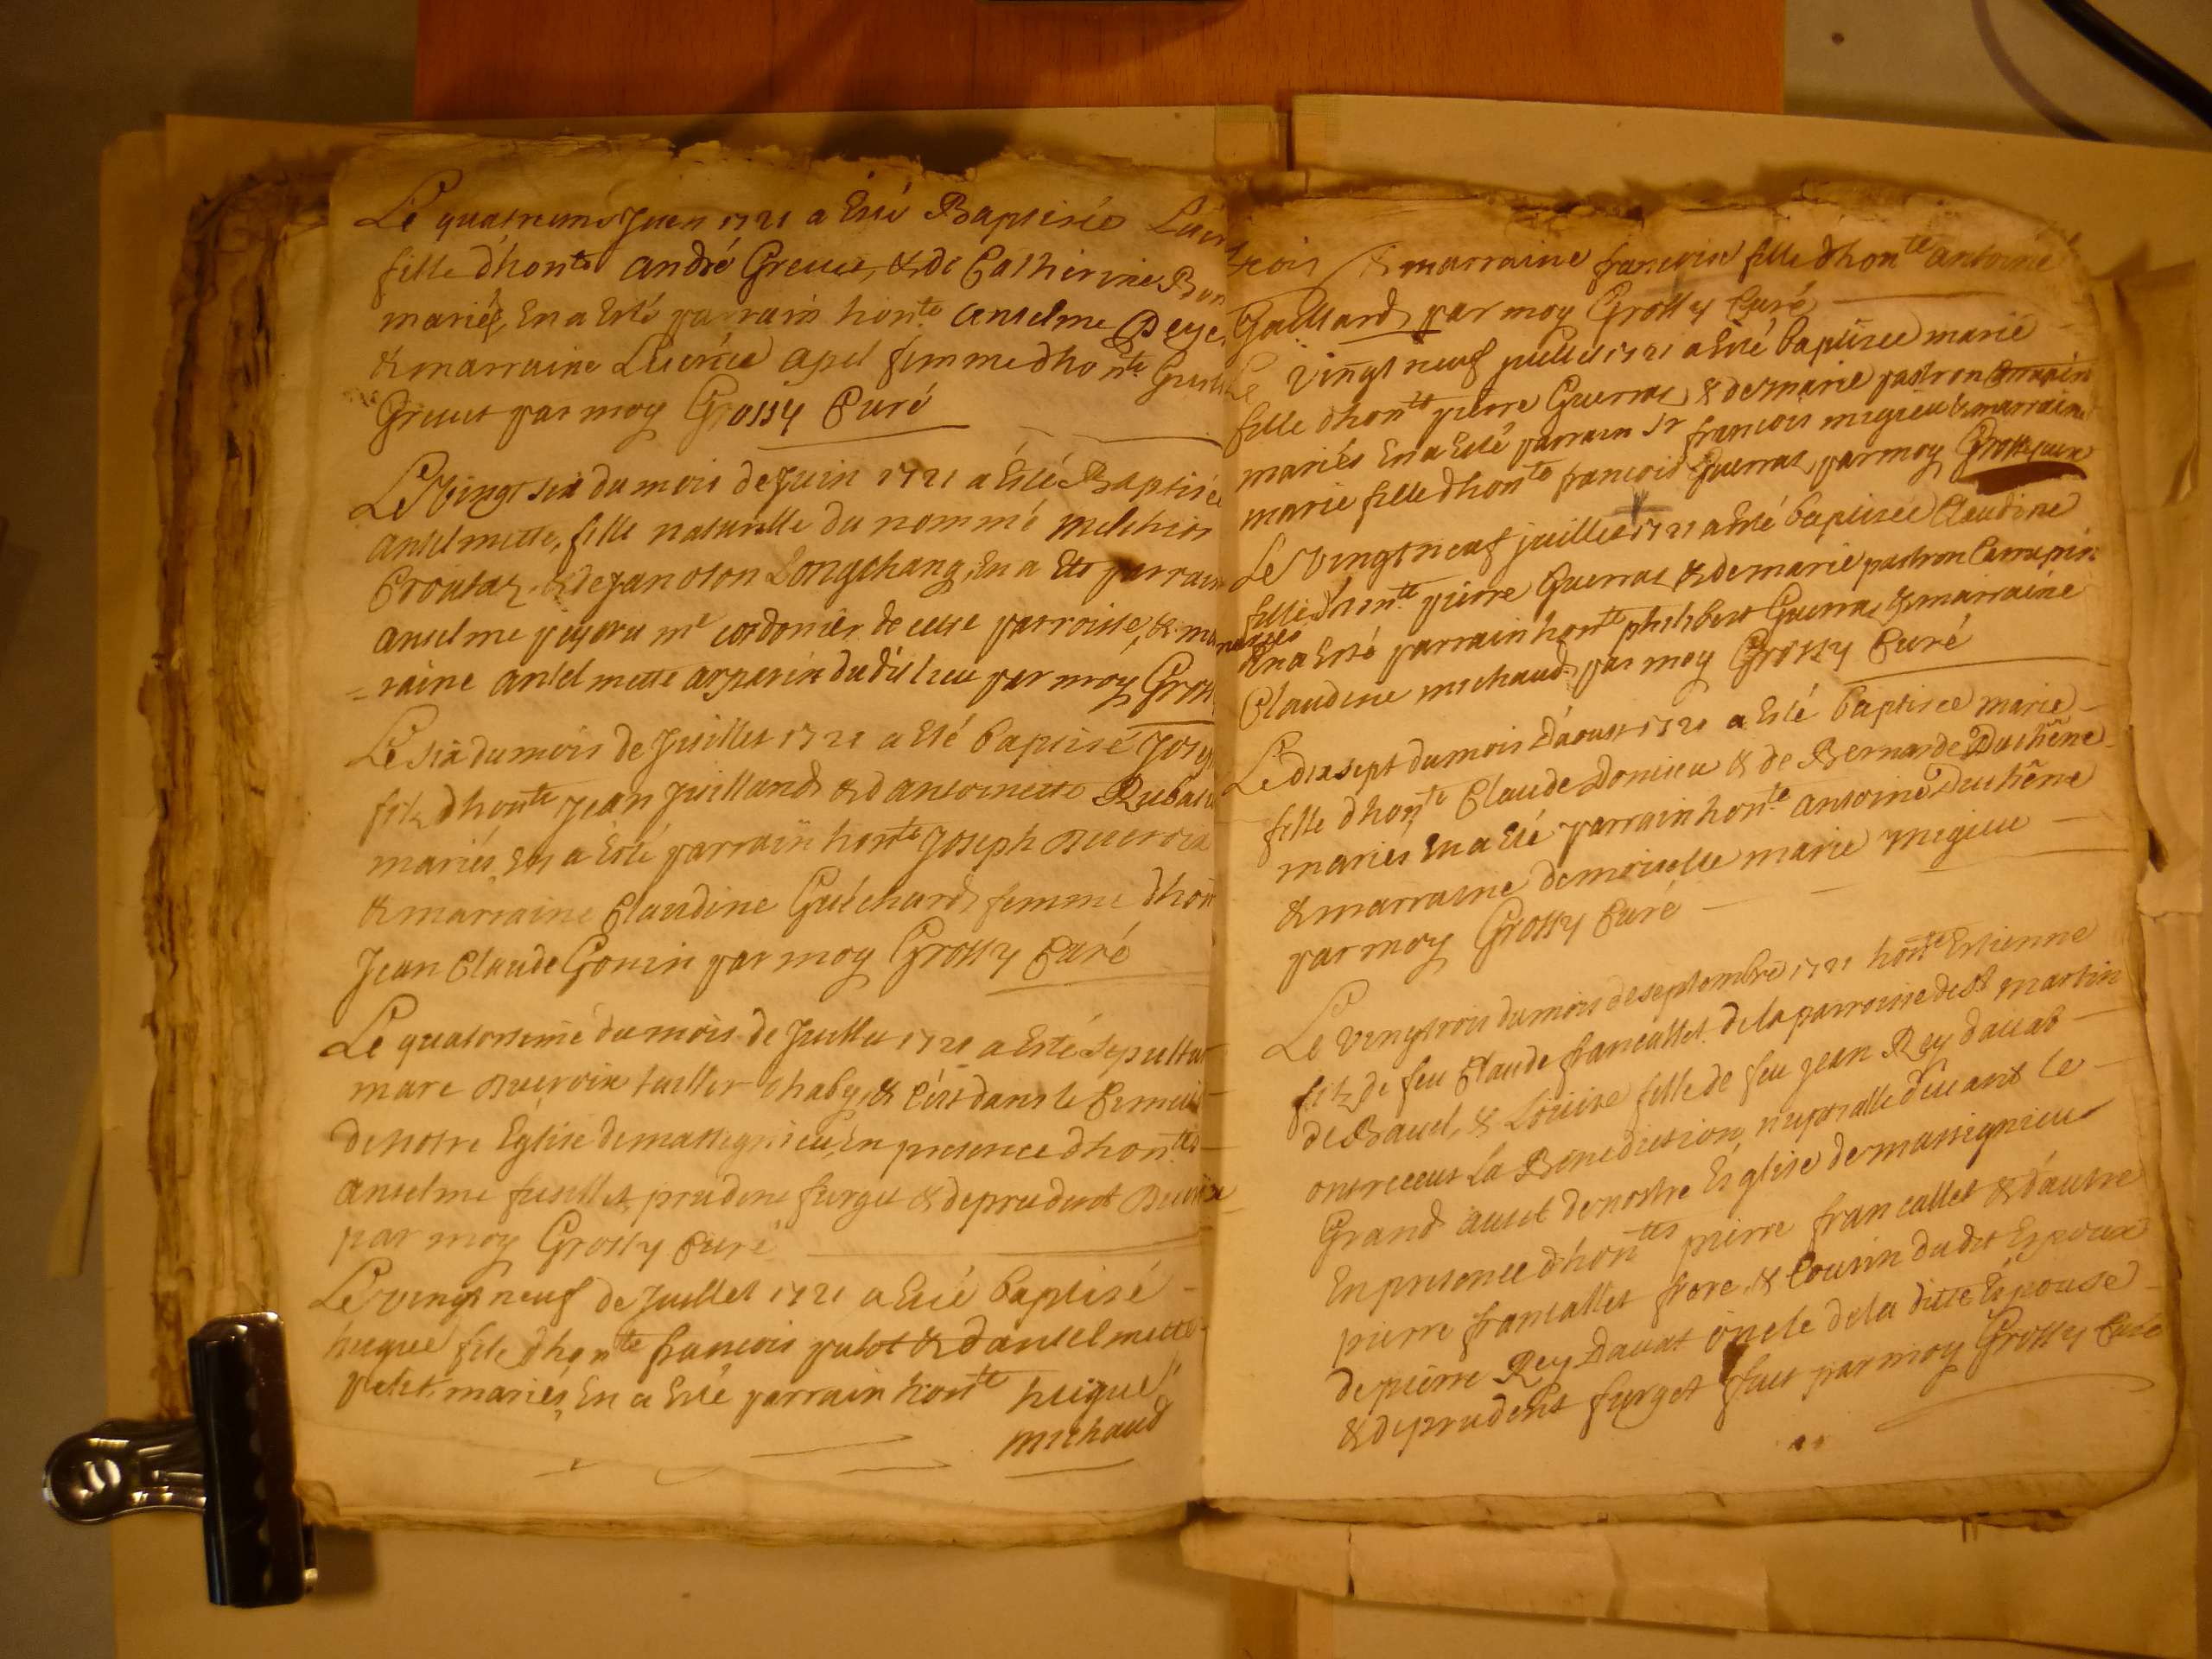 Le quatrieme Juin 1721 a Esté Baptisée
fille d'honte André Greuet, & de Catherine
mariés, En a Esté parrain honte Anselme
& marraine Lucrece apel femme d'honte
Greuet par moy Grossy Curé
Le Vingt six du mois de Juin 1721 a Esté Baptisée
anselmette, fille naturelle du nommé melchior
Croutaz & de janoton Longchang, En a Eté parrain
anselme me cordonier de cette parroisse, & mar
-raine anselmette du dit lieu par moy
Le six du mois de Juillet 1721 a Eté baptisé
filz d'honte jean juilland & d'antoinette
mariés, En a Esté parrain honte Joseph Ducroix
& marraine Claudine Guichard femme
Jean Claude Gonin par moy Grossy Curé
Le quatorsieme du mois de Juillet 1721 a Esté
marc Ducroix & c'est dans le
de nostre Eglise de massignieu, En presence d'hontes
anselme fusillet, prudent furget & de prudent
par moy Grossy Curé
Le vingt neuf de Juillet 1721 a Esté baptisé
hugue filz d'honte francois & d'anselmette
petit mariés, En a Esté parrain honte hugue
michaud
& marraine francoise fille d'honte antoine
Gaillard par moy Grossy Curé
Le vingt neuf juillet 1721 a Esté baptisée marie
fille d'honte pierre Guerraz & de marie patron
mariés En a Esté parrain Sr francois migieu & marraine
marie fille d'honte francois Guerraz par moy Grossy curé
Le Vingt neuf juillet 1721 a Esté baptisée Claudine
fille d'honte pierre Guerraz & de marie patron
mariés
En a Esté parrain honte philibert Guerraz & marraine
Claudine michaud par moy Grossy Curé
Le dixsept du mois d'aoust 1721 a Esté baptisée marie
fille d'honte Claude Domieu & de Bernarde Duchêne
mariés En a Eté parrain honte antoine Duchêne
& marraine demoiselle marie migieu
par moy Grossy Curé
Le vingtrois du mois de septembre 1721 honte Estienne
filz de feu Claude francallet de la parroisse de St martin
de Bavel, & Louise fille de feu jean Rey davat
ont receut la Benediction nuptialle devant le
Grand autel de nostre Esglise de massignieu
En presence d'hontes pierre francallet & d'autre
pierre francallet frere & Cousin du dit Espoux
de pierre Rey Davat oncle de la ditte Espouse
& de prudent furget fait par moy Grossy Curé